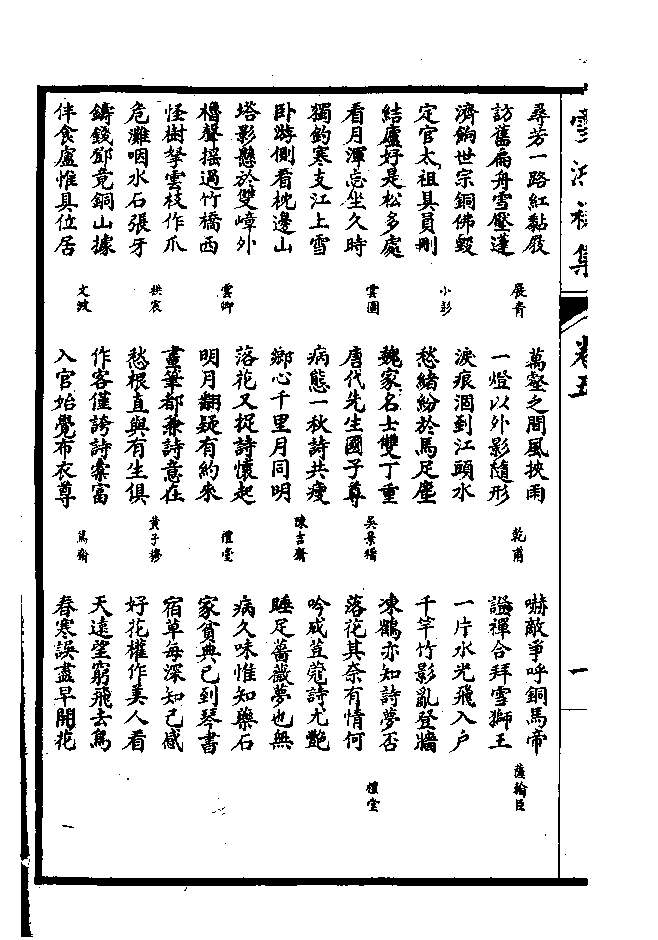 雪鴻初集
卷五
一
尋芳一路紅黏屐
訪舊扁舟雪壓蓬
展青
濟餉世宗銅佛毀
定官太祖具員刪
小彭
結廬好是松多處
看月渾忘坐久時
雲圃
獨釣寒支江上雪
臥游側看枕邊山
塔影懸於雙嶂外
櫓聲搖過竹橋西
雲卿
怪樹拏雲枝作爪
危灘咽水石張牙
拱宸
鑄錢鄧竟銅山據
伴食盧惟具位居
文波
萬壑之間風挾雨
一燈以外影隨形
乾甫
淚痕涸到江頭水
愁緒紛於馬足塵
魏家名士雙丁重
唐代先生國子尊
吳景禧
病態一秋詩共瘦
鄉心千里月同明
陳吉齋
落花又捉詩懷起
明月翻疑有約來
禮堂
畫筆都兼詩意在
愁根直與有生俱
黃子穆
作客僅誇詩橐富
入官始覺布衣尊
篤齋
嚇敵爭呼銅馬帝
謚禪合拜雪獅王
薩翰臣
一片水光飛入戶
千竿竹影亂登牆
凍鶴亦知詩夢否
落花其奈有情何
禮堂
吟成荳蔻詩尤艷
睡足薔薇夢也無
病久味惟知藥石
家貧典已到琴書
宿草每深知己感
好花權作美人看
天遠望窮飛去鳥
春寒誤盡早開花